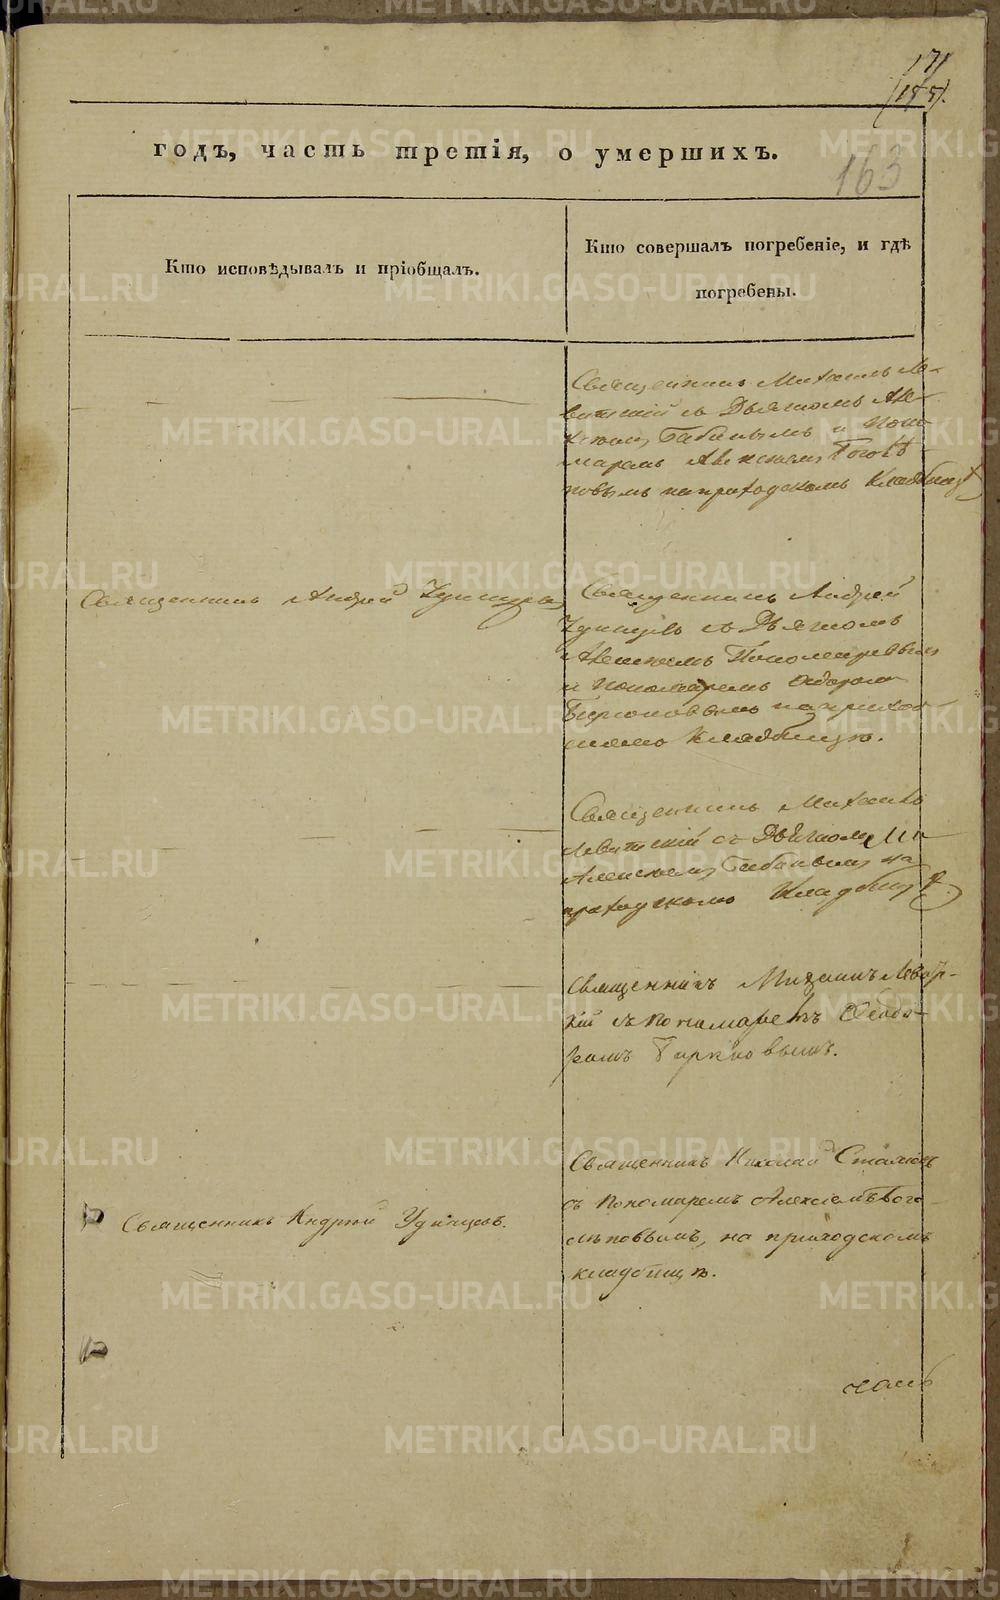 171
(155).
годъ, часть третія, о умершихъ.
163
Кто исповѣдывалъ и пріобщалъ.
Кто совершалъ погребеніе, и гдѣ
погребены.
Священникъ Михаилъ Ле-
витскій съ Дьячкомъ Але-
ксѣемъ Бабинымъ и Поно-
маремъ Алексѣемъ Боголѣ-
повымъ на приходскомъ Кладбищѣ
Священникъ Андрей Удинцовъ
Священникъ Андрей
Удинцовъ съ Дьячкомъ
Пономаревымъ
и Пономаремъ Ѳедоромъ
на приход-
скомъ Кладбищѣ.
Священникъ Михаилъ
Левитскій съ Дьячкомъ
Алексѣемъ Бабинымъ на
приходскомъ Кладбищѣ.
Священникъ Михаилъ Левит-
кій съ пономаремъ Ѳеодо-
ромъ
Священникъ Николай
съ Пономаремъ Алексіемъ Бого-
лѣповымъ, на приходскомъ
кладбищѣ.
Священникъ Андрей Удинцовъ.
METRIKI.GASO-URAL.RU